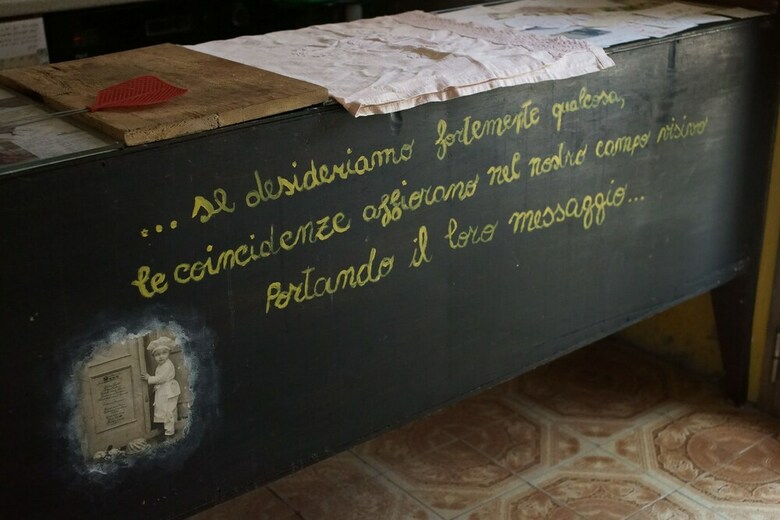 ... se desideriamo fortemente qualcosa,
le coincidenze affiorano nel nostro campo visivo
Portando il loro messaggio...